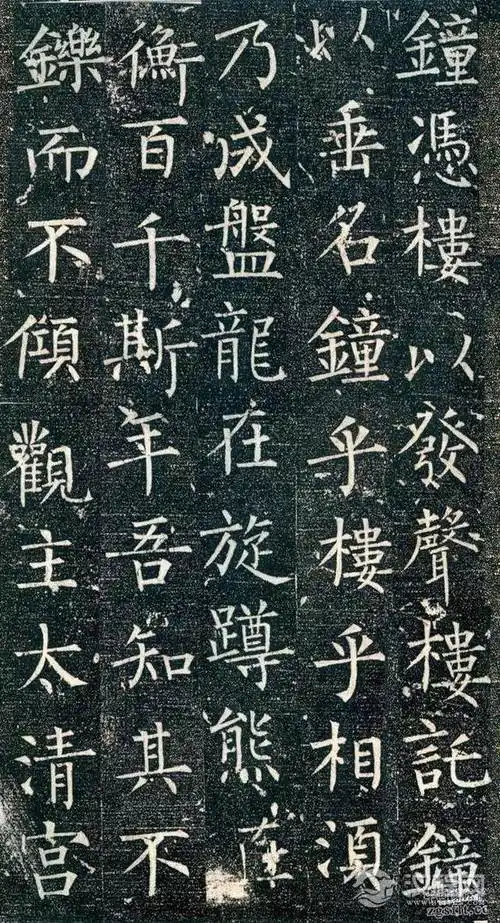 鐘憑樓以發聲樓託鐘
以垂名鐘乎樓乎相須
乃成盤龍在旋蹲熊在
衡百千斯年吾知其不
鑠而不傾觀主太清宮